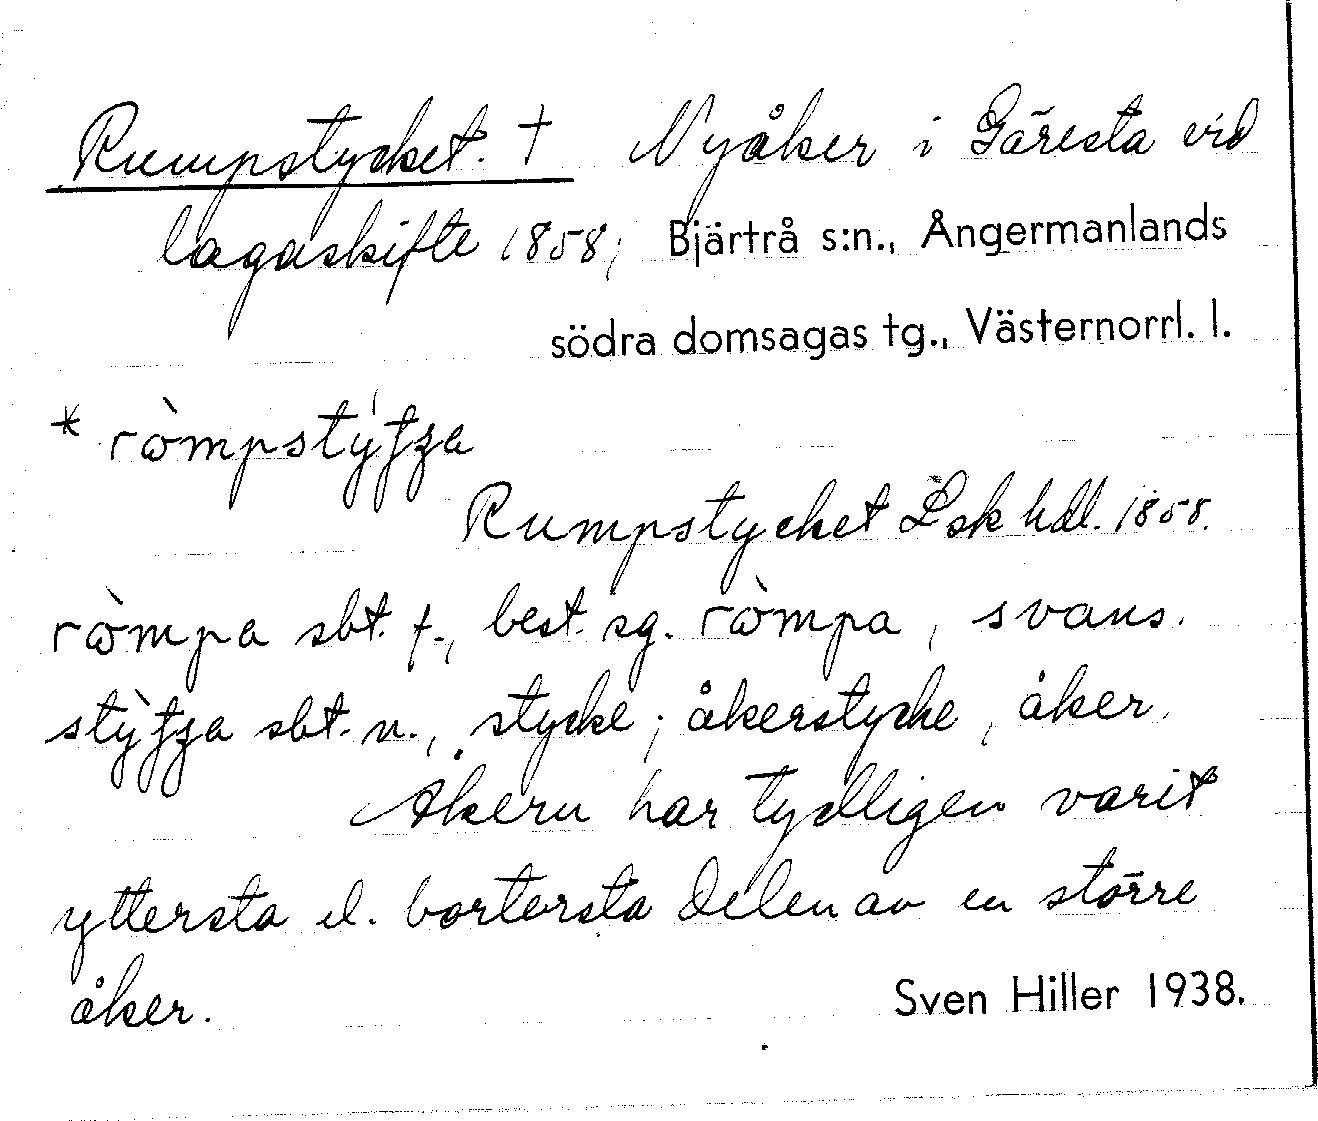 Rumpstycket. † Nyåker i Gäresta vid
lagaskifte 1858, Bjärtrå s:n., Ångermanlands
södra domsagas tg., Västernorrl. l.
Rumpstycket Lsk hdl. 1858.
sbt. f., best. sg. , svans.
sbt. n., stycke; åkerstycke, åker.
Åkern har tydligen varit
yttersta el. bortersta delen av en större
åker. Sven Hiller 1938.